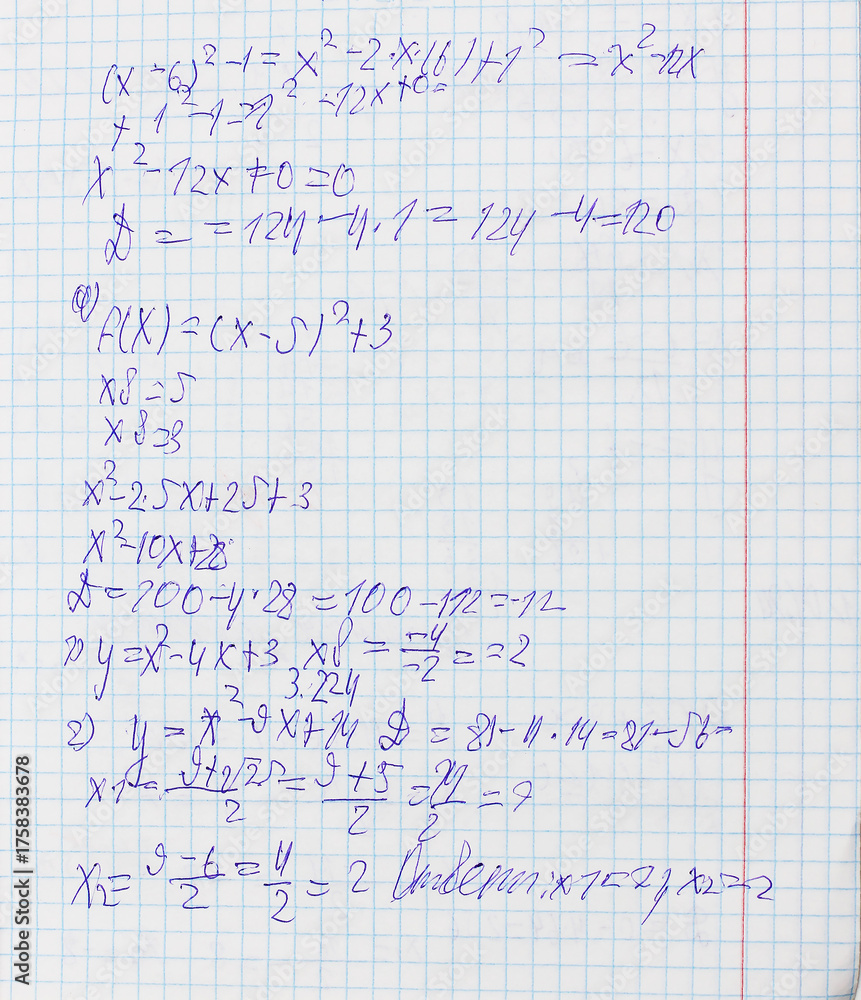 (x-6)²-1=x²-2·x·(6)+1²=x²-12x
+1²-1=1²-12x+0=
x²-12x+0=0
D==124-4·1=124-4=120
f(x)=(x-5)²+3
xв=5
xв=3
x²-2·5x+25+3
x²-10x+28
D=100-4·28=100-112=-12
1) y=x²-4x+3 xв=-4/-2==2
3.224
2) y=x²-9x+14 D=81-4·14=81-56=
x1=9+√25/2=9+5/2=14/2=7
x2=9-5/2=4/2=2 Ответ: x1=7; x2=2
Adobe Stock | #1758383678